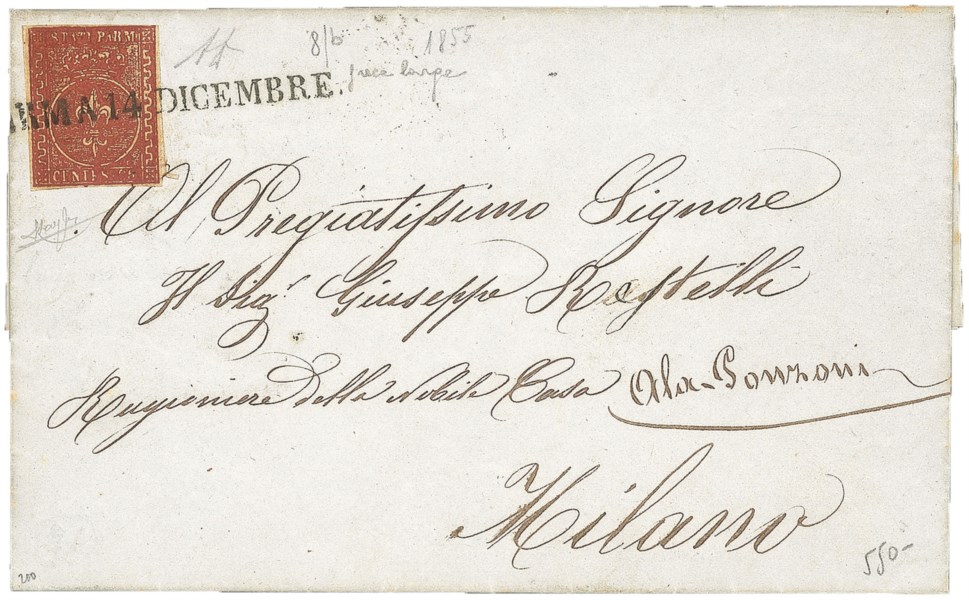 STATI PARM
8/b 1855
ARMA 14 DICEMBRE.
CENTES
Al Pregiatissimo Signore
Il Sig.r Giuseppe Restelli
Ragioniere della Nobile Casa Ala-Ponzoni
Milano
550-
200